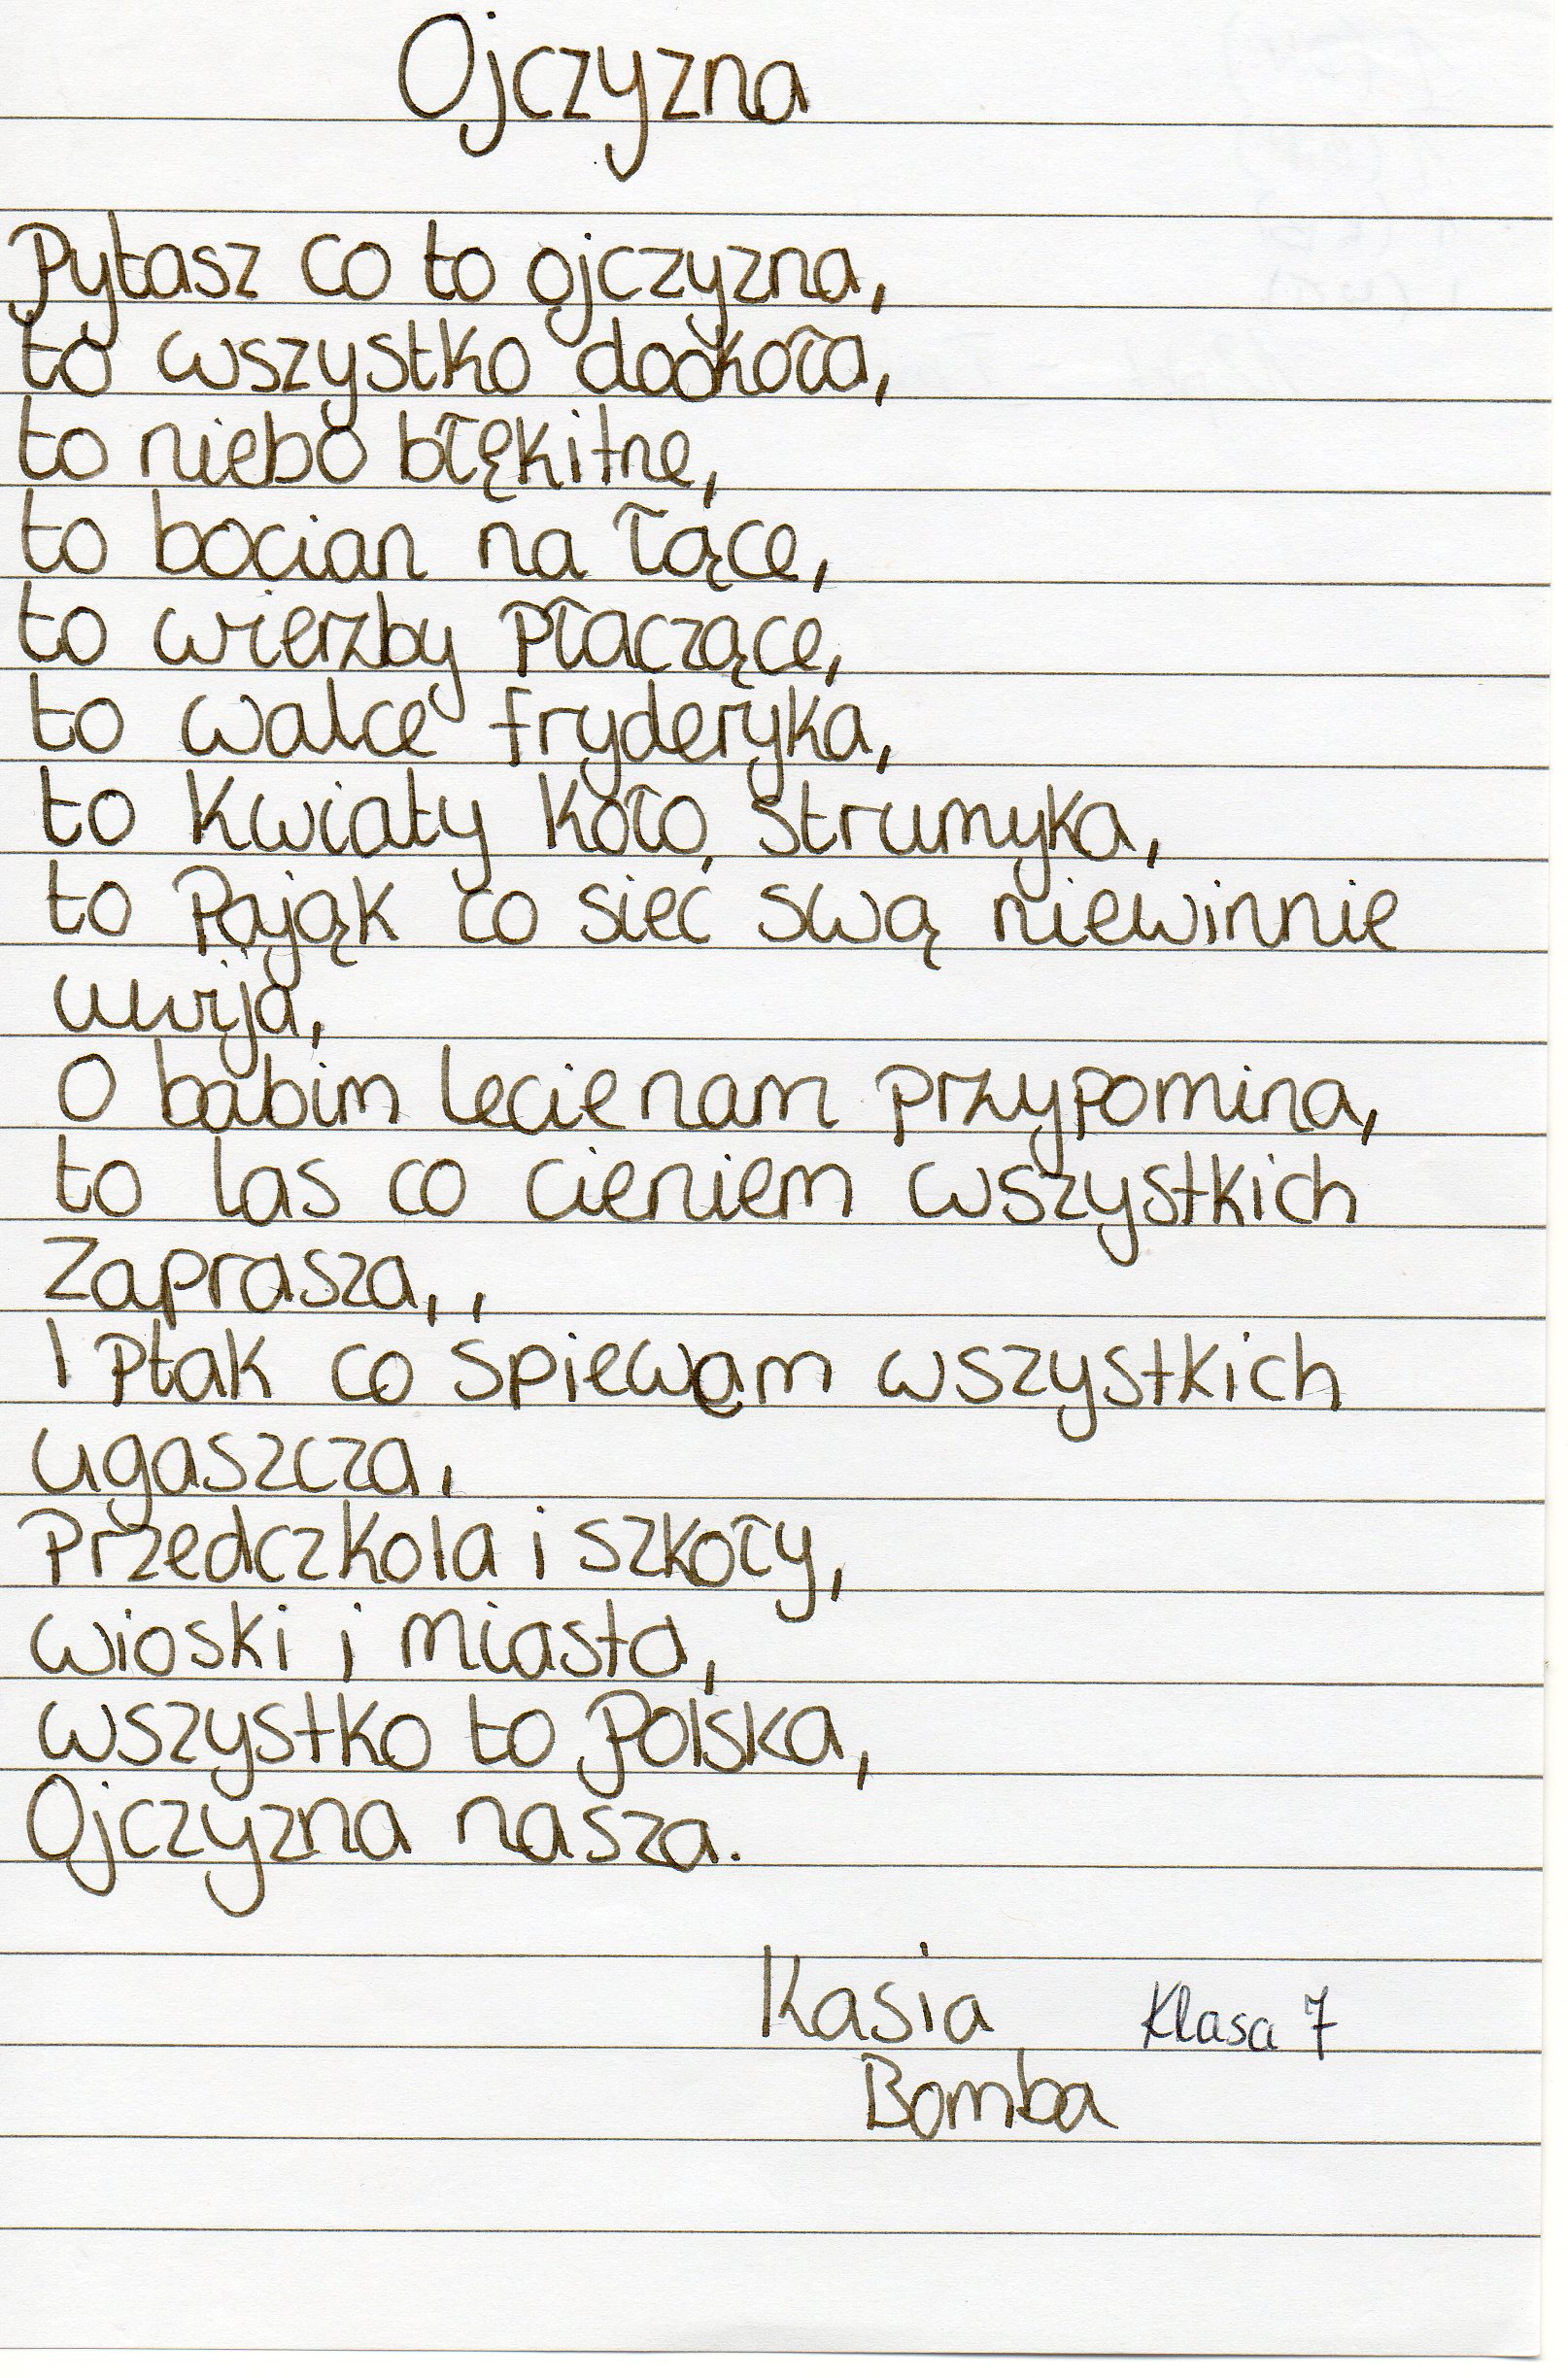 Ojczyzna
Pytasz co to ojczyzna,
to wszystko dookoła,
to niebo błękitne,
to bocian na łące,
to wierzby płaczące,
to walce fryderyka,
to kwiaty koło strumyka,
to Pająk co sieć swą niewinnie
uwija,
O babim lecie nam przypomina,
to las co cieniem wszystkich
Zaprasza, ,
I Ptak co śpiewam wszystkich
ugaszcza,
Przedczkola i szkoły,
wioski i miasta,
wszystko to Polska,
Ojczyzna nasza.
Kasia Klasa 7
Bomba